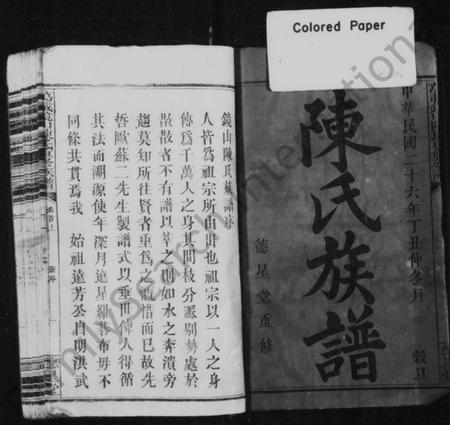 Colored Paper
中華民國二十六年丁丑仲冬月 穀旦
陳氏族譜
德星堂重修
鏡山陳氏族譜序
人皆爲祖宗所由出也祖宗以一人之身
傳爲千萬人之身其間枝分派別勢處於
散散者不有譜以萃之則如水之奔潰旁
趨莫知所往賢者重爲之慨惜而已故先
哲歐蘇二先生製譜式以垂世俾人得循
其法而溯源使年深月遠星羅棊布毋不
同條共貫焉我 始祖遠芳公自明洪武